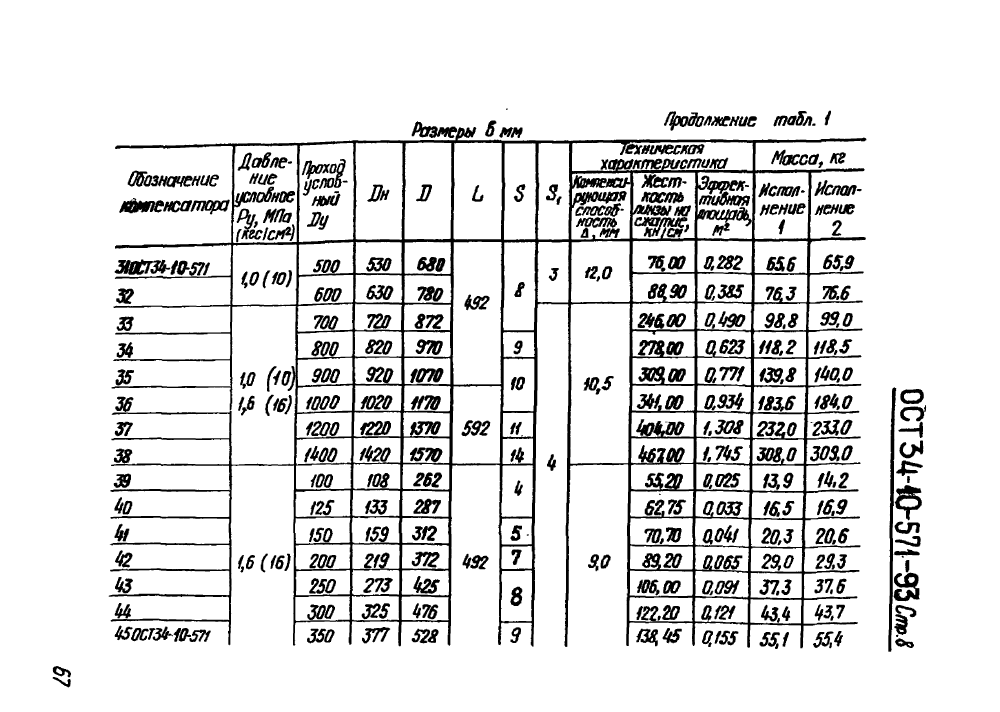 Продолжение табл. 1
Размеры в мм
Обозначение компенсатора | Давление условное Ру, МПа (кгс/см²) | Проход условный Ду | Dн | D | L | S | S₁ | Техническая характеристика | Масса, кг
Компенсирующая способность Δ, мм | Жесткость линзы на сжатие, кН/см | Эффективная площадь, м² | Исполнение 1 | Исполнение 2
31 ОСТ34-10-571 | 1,0 (10) | 500 | 530 | 680 | 492 | 8 | 3 | 12,0 | 76,00 | 0,282 | 65,6 | 65,9
32 | 600 | 630 | 780 | 88,90 | 0,385 | 76,3 | 76,6
33 | 1,0 (10) 1,6 (16) | 700 | 720 | 872 | 4 | 10,5 | 246,00 | 0,490 | 98,8 | 99,0
34 | 800 | 820 | 970 | 9 | 278,00 | 0,623 | 118,2 | 118,5
35 | 900 | 920 | 1070 | 10 | 309,00 | 0,771 | 139,8 | 140,0
36 | 1000 | 1020 | 1170 | 592 | 341,00 | 0,934 | 183,6 | 184,0
37 | 1200 | 1220 | 1370 | 11 | 404,00 | 1,308 | 232,0 | 233,0
38 | 1400 | 1420 | 1570 | 14 | 467,00 | 1,745 | 308,0 | 309,0
39 | 1,6 (16) | 100 | 108 | 262 | 492 | 4 | 9,0 | 55,20 | 0,025 | 13,9 | 14,2
40 | 125 | 133 | 287 | 62,75 | 0,033 | 16,5 | 16,9
41 | 150 | 159 | 312 | 5 | 70,70 | 0,041 | 20,3 | 20,6
42 | 200 | 219 | 372 | 7 | 89,20 | 0,065 | 29,0 | 29,3
43 | 250 | 273 | 425 | 8 | 106,00 | 0,091 | 37,3 | 37,6
44 | 300 | 325 | 476 | 122,20 | 0,121 | 43,4 | 43,7
45 ОСТ34-10-571 | 350 | 377 | 528 | 9 | 138,45 | 0,155 | 55,1 | 55,4
ОСТ 34-10-571-93 Стр. 8
67